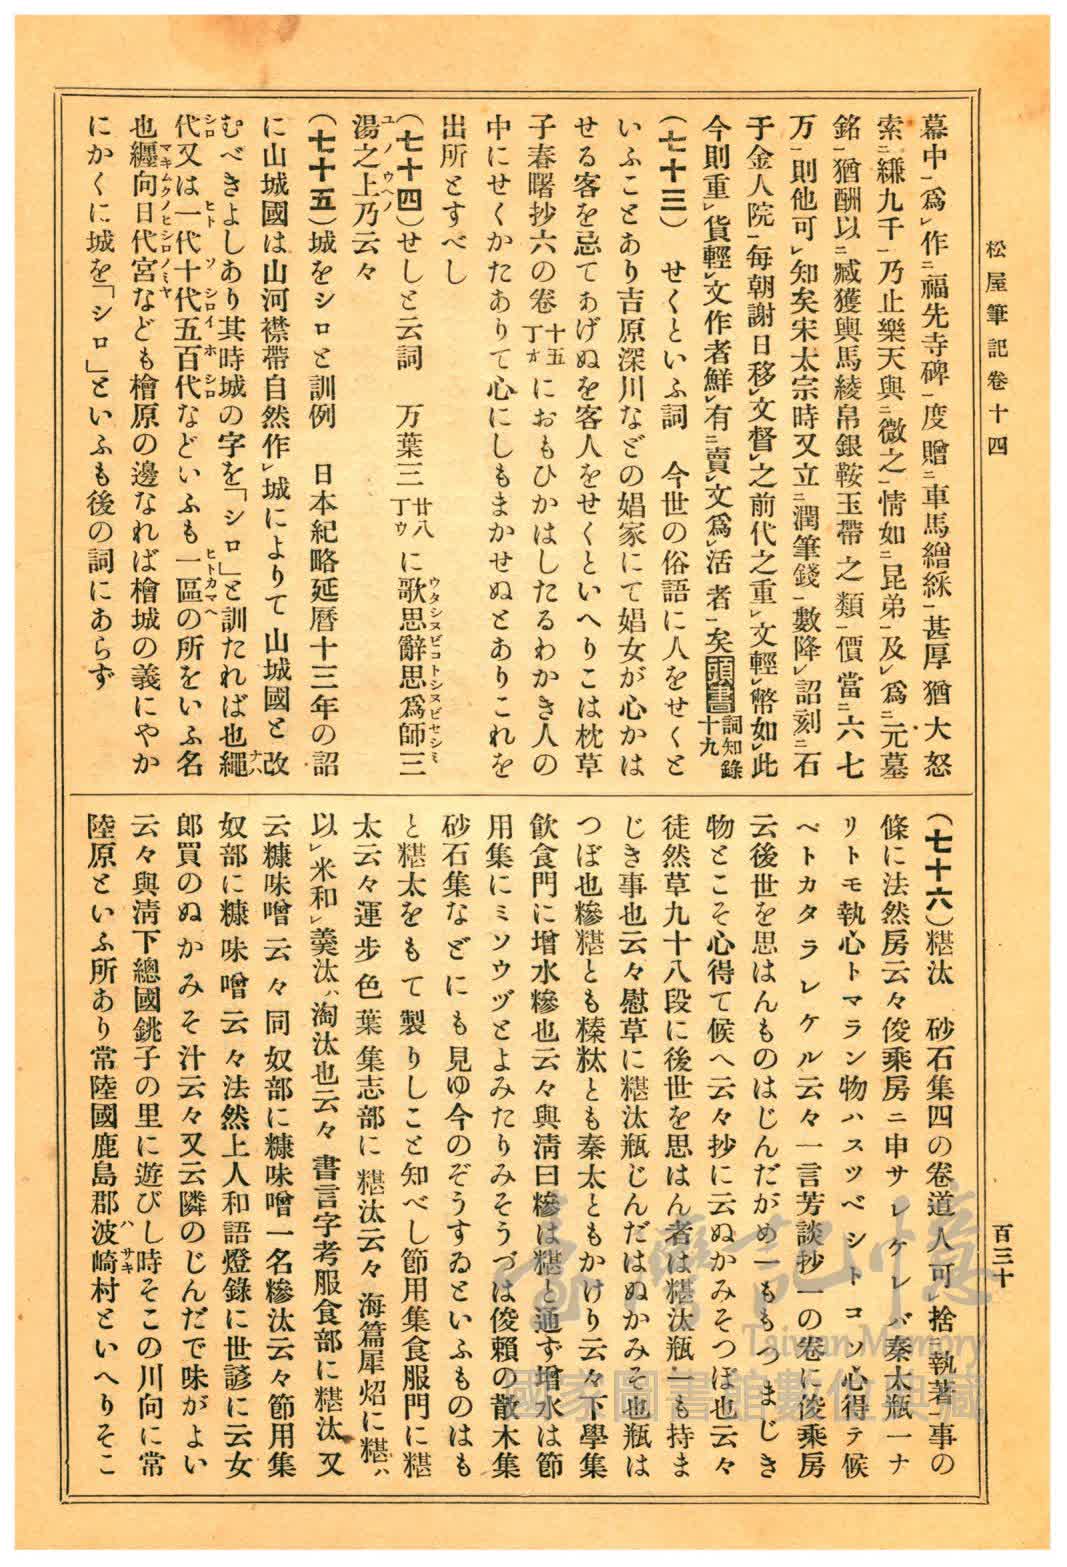 松屋筆記卷十四
百三十
幕中一爲レ作二福先寺碑一度贈二車馬繒綵一甚厚猶大怒
索二縑九千一乃止樂天與二微之一情如二昆弟一及レ爲二元墓
銘一猶酬以二臧獲輿馬綾帛銀鞍玉帶之類一價當二六七
万一則他可レ知矣宋太宗時又立二潤筆錢一數降レ詔刻二石
于金人院一每朝謝日移レ文督レ之前代之重レ文輕レ幣如レ此
今則重レ貨輕レ文作者鮮レ有二賣レ文爲レ活者一矣頭書詞知錄十九
(七十三) せくといふ詞 今世の俗語に人をせくと
いふことあり吉原深川などの娼家にて娼女が心かは
せる客を忌てあげぬを客人をせくといへりこは枕草
子春曙抄六の卷十五丁オにおもひかはしたるわかき人の
中にせくかたありて心にしもまかせぬとありこれを
出所とすべし
(七十四)せしと云詞 万葉三廿八丁ウに歌思辭思爲師三
湯之上乃云々
(七十五)城をシロと訓例 日本紀略延暦十三年の詔
に山城國は山河襟帶自然作レ城によりて山城國と改
むべきよしあり其時城の字を「シロ」と訓たれば也繩
代又は一代十代五百代などいふも一區の所をいふ名
也纒向日代宮なども檜原の邊なれば檜城の義にやか
にかくに城を「シロ」といふも後の詞にあらず
(七十六)糂汰 砂石集四の卷道人可レ捨二執著一事の
條に法然房云々俊乘房ニ申サレケレバ秦太瓶一ナ
リトモ執心トマラン物ハスツベシトコソ心得テ候
ベトカタラレケル云々一言芳談抄一の卷に俊乘房
云後世を思はんものはじんだがめ一ももつまじき
物とこそ心得て候へ云々抄に云ぬかみそつぼ也云々
徒然草九十八段に後世を思はん者は糂汰瓶一も持ま
じき事也云々慰草に糂汰瓶じんだはぬかみそ也瓶は
つぼ也糝糂とも榛粏とも秦太ともかけり云々下學集
飮食門に増水糝也云々與淸曰糝は糂と通ず増水は節
用集にミソウヅとよみたりみそうづは俊賴の散木集
砂石集などにも見ゆ今のぞうすゐといふものはも
と糂太をもて製りしこと知べし節用集食服門に糂
太云々運步色葉集志部に糂汰云々海篇犀炤に糂ハ
以レ米和レ羹汰ハ淘汰也云々書言字考服食部に糂汰又
云糠味噌云々同奴部に糠味噌一名糝汰云々節用集
奴部に糠味噌云々法然上人和語燈錄に世諺に云女
郎買のぬかみそ汁云々又云隣のじんだで味がよい
云々與淸下總國銚子の里に遊びし時そこの川向に常
陸原といふ所あり常陸國鹿島郡波崎村といへりそこ